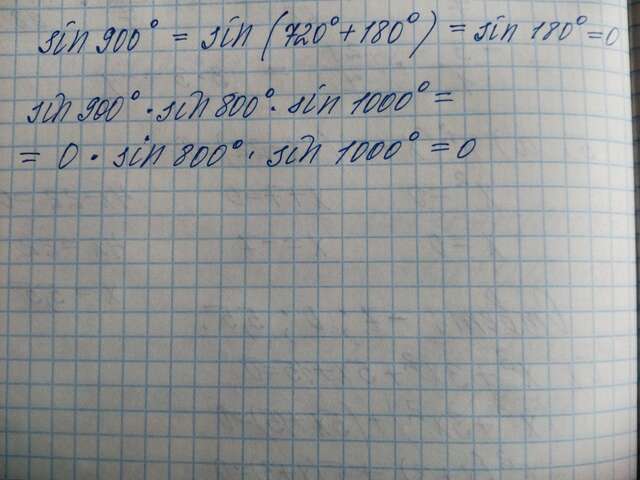 sin 900° = sin (720° + 180°) = sin 180° = 0
sin 900° · sin 800° · sin 1000° =
= 0 · sin 800° · sin 1000° = 0